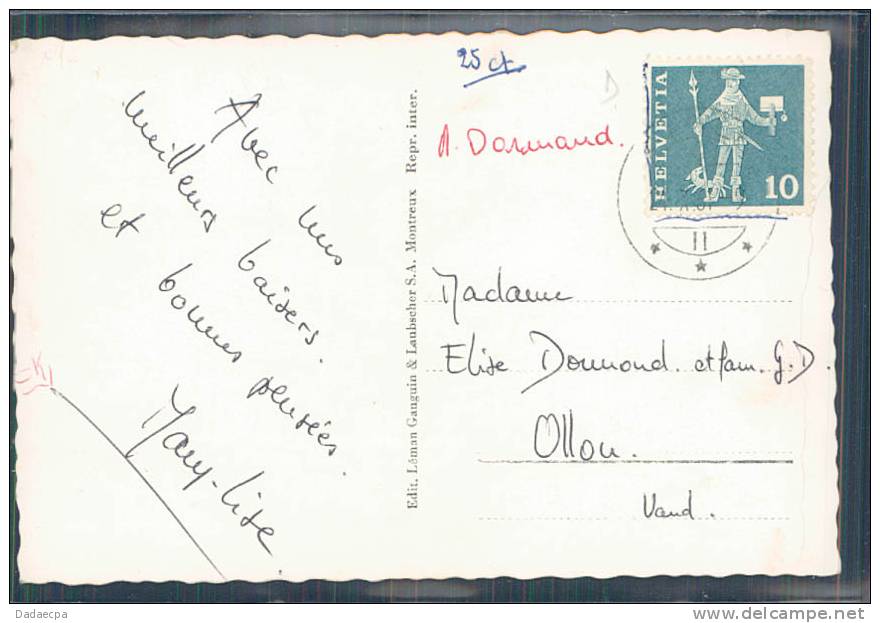 Avec mes
meilleurs baisers.
et bonnes pensées.
Mary-lise.
Edit. Léman Ganguin & Laubscher S.A. Montreux Repr. inter.
25 ct
A. Dormond.
HELVETIA
10
II
Madame
Elise Dormond et fam. G.D.
Ollon.
Vaud.
Dadaecpa
http://www.delcampe.net